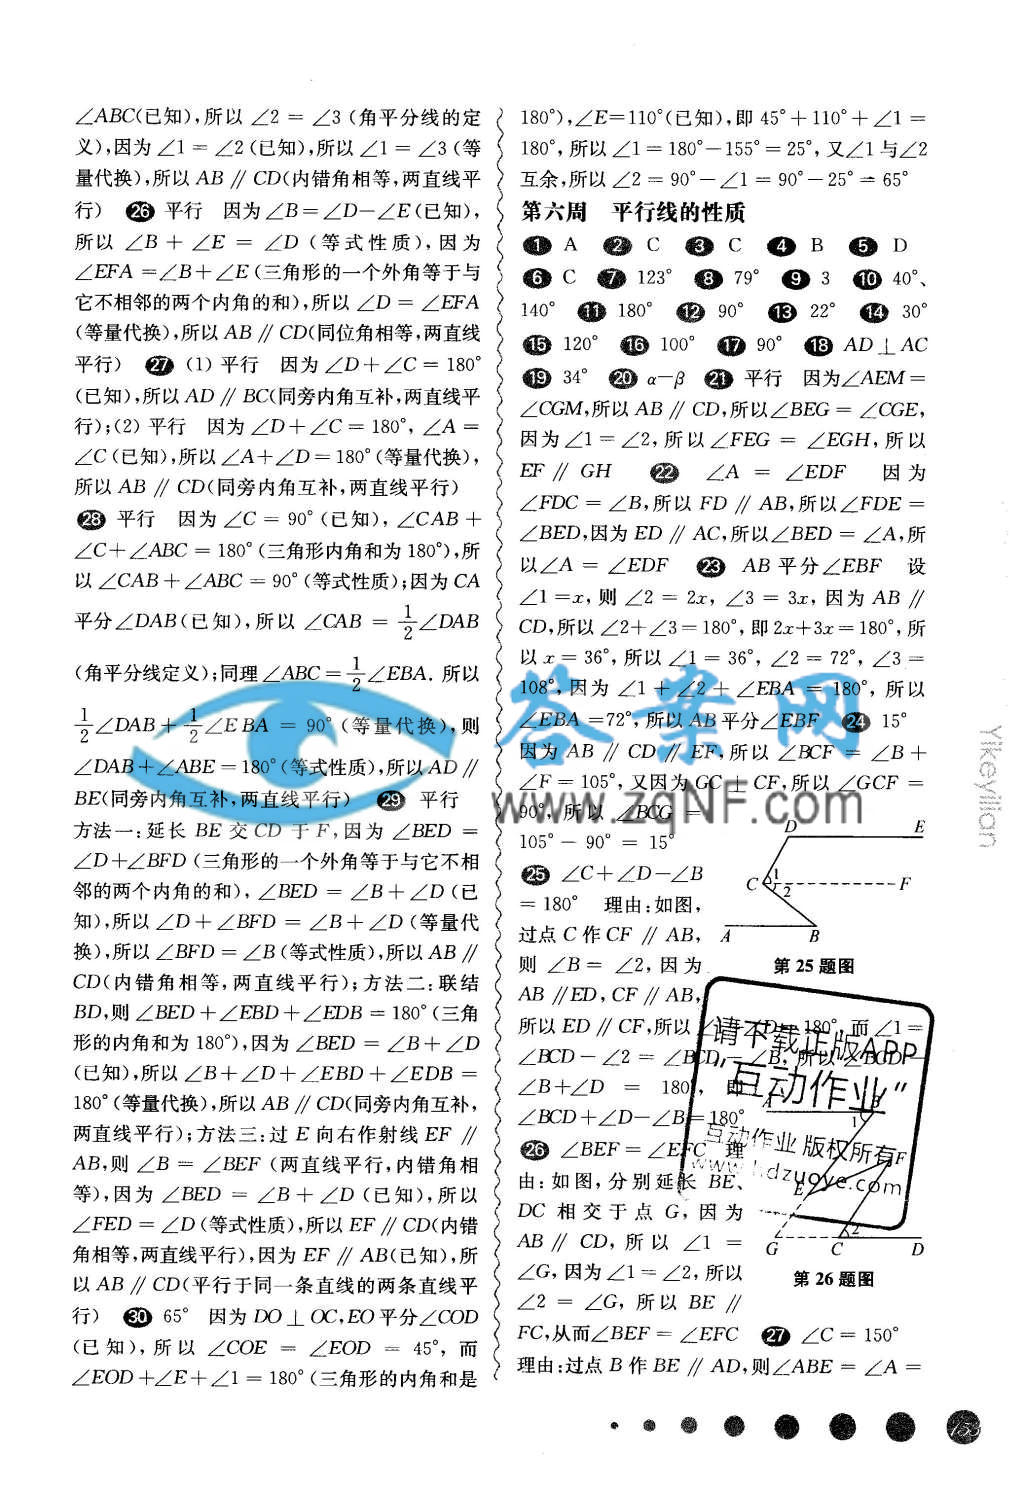 ∠ABC(已知),所以 ∠2 = ∠3 (角平分线的定
义),因为 ∠1 = ∠2 (已知),所以 ∠1 = ∠3 (等
量代换),所以 AB // CD(内错角相等,两直线平
行) 26 平行 因为 ∠B=∠D-∠E (已知),
所以 ∠B + ∠E = ∠D (等式性质),因为
∠EFA =∠B+∠E (三角形的一个外角等于与
它不相邻的两个内角的和),所以 ∠D = ∠EFA
(等量代换),所以 AB // CD(同位角相等,两直线
平行) 27 (1) 平行 因为 ∠D+∠C = 180°
(已知),所以 AD // BC(同旁内角互补,两直线平
行);(2) 平行 因为 ∠D+∠C = 180°, ∠A =
∠C (已知),所以 ∠A+∠D=180° (等量代换),
所以 AB // CD(同旁内角互补,两直线平行)
28 平行 因为 ∠C = 90° (已知), ∠CAB +
∠C+∠ABC = 180° (三角形内角和为 180°),所
以 ∠CAB+∠ABC = 90° (等式性质);因为 CA
平分∠DAB(已知),所以 ∠CAB = 1/2∠DAB
(角平分线定义);同理∠ABC=1/2∠EBA. 所以
1/2∠DAB+1/2∠EBA = 90° (等量代换),则
∠DAB+∠ABE=180°(等式性质),所以AD //
BE(同旁内角互补,两直线平行) 29 平行
方法一:延长 BE 交 CD 于 F,因为 ∠BED =
∠D+∠BFD (三角形的一个外角等于与它不相
邻的两个内角的和), ∠BED = ∠B+∠D (已
知),所以 ∠D+∠BFD = ∠B+∠D (等量代
换),所以 ∠BFD = ∠B (等式性质),所以 AB //
CD(内错角相等,两直线平行);方法二:联结
BD,则 ∠BED+∠EBD+∠EDB = 180°(三角
形的内角和为 180°),因为 ∠BED = ∠B+∠D
(已知),所以 ∠B+∠D+∠EBD+∠EDB =
180°(等量代换),所以 AB // CD(同旁内角互补,
两直线平行);方法三:过 E 向右作射线 EF //
AB,则 ∠B = ∠BEF (两直线平行,内错角相
等),因为 ∠BED = ∠B+∠D (已知),所以
∠FED = ∠D (等式性质),所以 EF // CD(内错
角相等,两直线平行),因为 EF // AB(已知),所
以 AB // CD(平行于同一条直线的两条直线平
行) 30 65° 因为 DO⊥OC,EO平分∠COD
(已知),所以 ∠COE = ∠EOD = 45°,而
∠EOD+∠E+∠1=180°(三角形的内角和是
180°),∠E=110°(已知),即 45°+110°+∠1 =
180°,所以∠1=180°-155°=25°,又∠1与∠2
互余,所以 ∠2 = 90°-∠1 = 90°-25° = 65°
第六周 平行线的性质
1 A 2 C 3 C 4 B 5 D
6 C 7 123° 8 79° 9 3 10 40°、
140° 11 180° 12 90° 13 22° 14 30°
15 120° 16 100° 17 90° 18 AD⊥AC
19 34° 20 α-β 21 平行 因为∠AEM =
∠CGM,所以 AB // CD,所以∠BEG = ∠CGE,
因为 ∠1 = ∠2,所以 ∠FEG = ∠EGH,所以
EF // GH 22 ∠A = ∠EDF 因为
∠FDC = ∠B,所以 FD // AB,所以∠FDE =
∠BED,因为 ED // AC,所以∠BED = ∠A,所
以∠A = ∠EDF 23 AB平分∠EBF 设
∠1=x,则 ∠2 = 2x, ∠3 = 3x,因为 AB //
CD,所以∠2+∠3=180°,即2x+3x=180°,所
以 x = 36°,所以 ∠1 = 36°, ∠2 = 72°, ∠3 =
108°,因为 ∠1 + ∠2 + ∠EBA = 180°,所以
∠EBA=72°,所以AB平分∠EBF 24 15°
因为 AB // CD // EF,所以 ∠BCF = ∠B +
∠F = 105°,又因为GC⊥CF,所以 ∠GCF =
90°,所以 ∠BCG =
105° - 90° = 15°
25 ∠C+∠D-∠B
=180° 理由:如图,
过点C作CF // AB,
则 ∠B = ∠2,因为
AB //ED,CF // AB,
所以ED // CF,所以∠1+∠D=180°,而∠1=
∠BCD-∠2=∠BCD-∠B,所以∠BCD-
∠B+∠D = 180°,即
∠BCD+∠D-∠B=180°
26 ∠BEF=∠EFC 理
由:如图,分别延长 BE、
DC 相交于点 G,因为
AB // CD,所以 ∠1 =
∠G,因为∠1=∠2,所以
∠2 = ∠G,所以 BE //
FC,从而∠BEF = ∠EFC 27 ∠C = 150°
理由:过点B作BE // AD,则∠ABE = ∠A =
D E
C 1 2 F
A B
第25题图
A B
1
E F
2
G C D
第26题图
答案网
www.zqNF.com
请不要下载正版APP
"互动作业"
互动作业 版权所有
www.hdzuoye.com
Yikeyilian
153